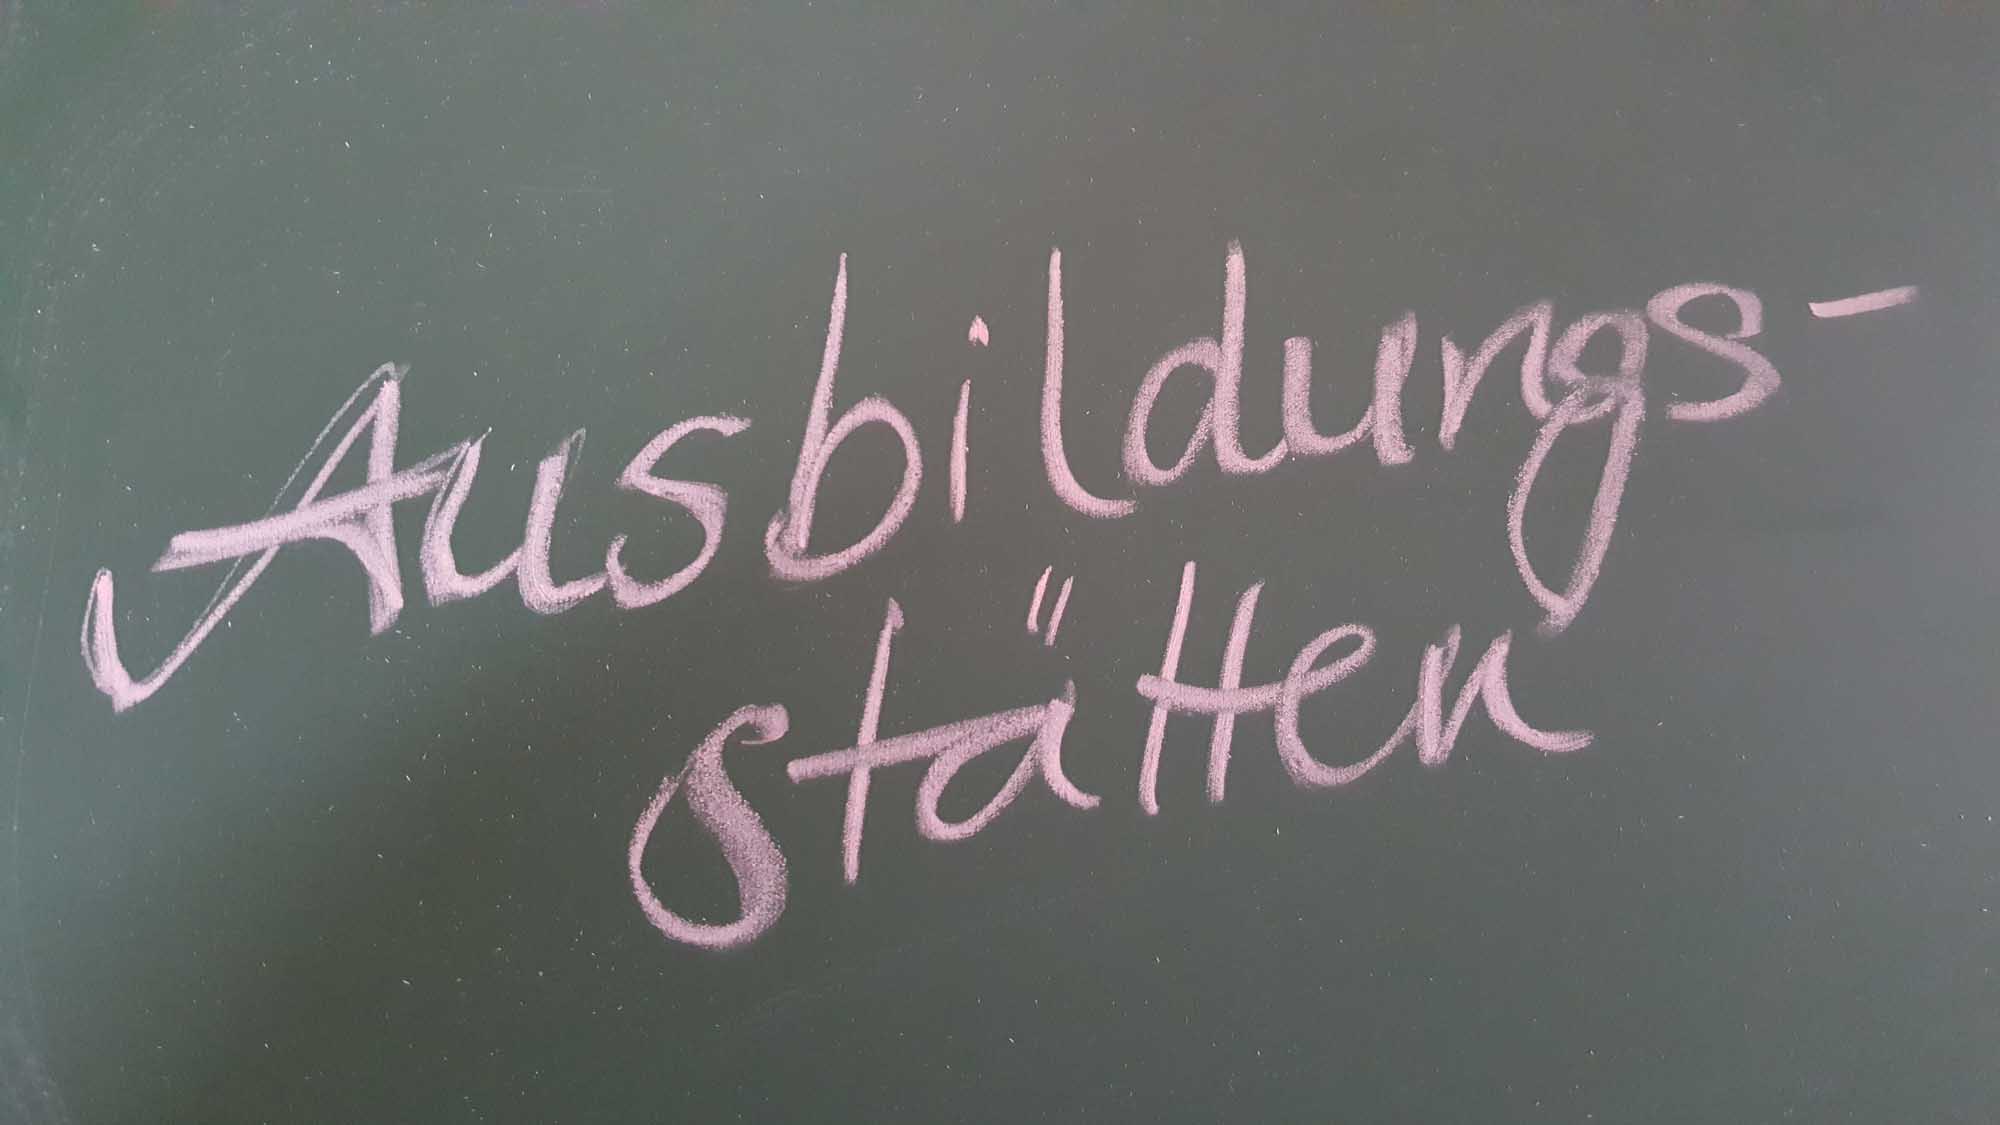 Ausbildungs-
stätten